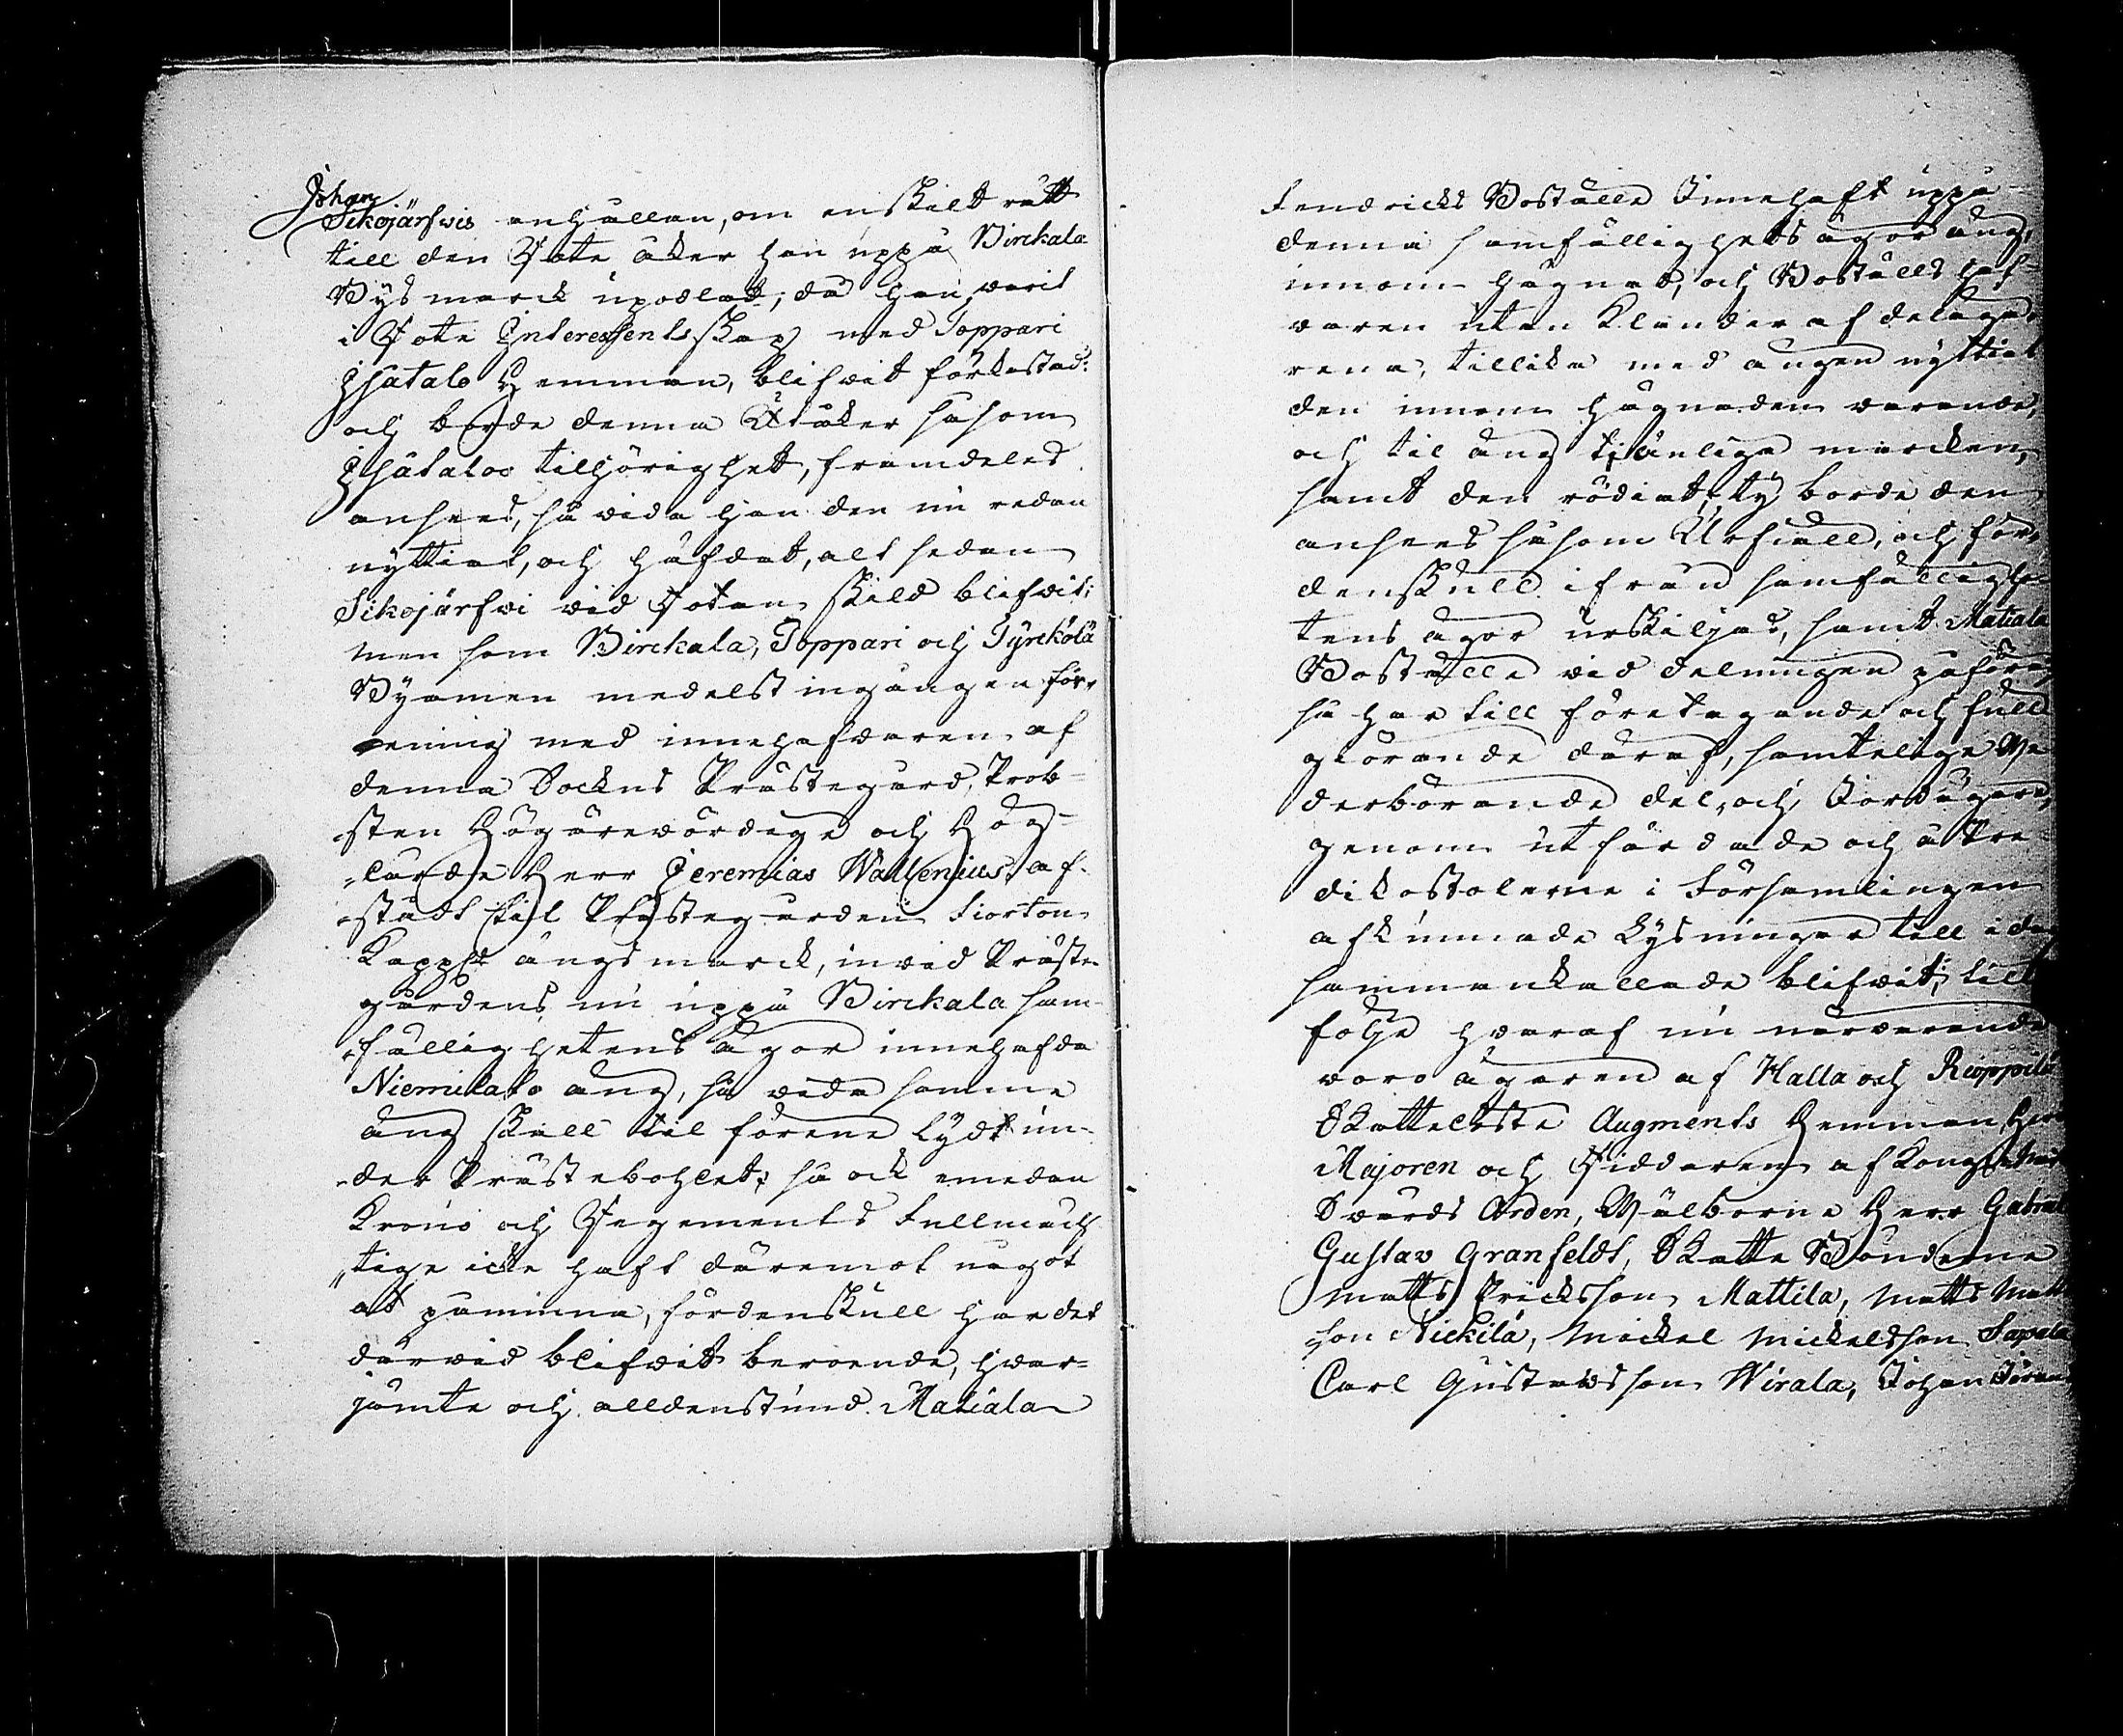 Johan
Sikojärfwis anhållan, om enskilt rätt
till den Rote åker han uppå Birckala
Bys marck upodlad, då han warit
i Rote Interessentskap med Toppari
Isatalo Hemman, blifwit förkastad:
och borde denna Utåker såsom
Isätaloo tilhörighet, framdeles
anses, så wida han den nu redan
nyttiat, och häfdat, alt sedan
Sikojärfwi wid Rotan skild blifwit;
men som Birckala, Toppari och Pyrckölä
Byamen medelst ingången för-
ening med innehafwaren af
denna Sockns Prästegård, Prob-
sten Högärewördige och Hög-
lärde Herr Jeremias Wallenius, af-
städt til Prästegården fiorton
Kappld ängsmarck, inwid Präste-
gårdens nu uppå Birckala sam-
fällighetens ägor innehafda
Niemilato äng, så wida samma
äng skall til förene lydt un-
der Prästebohlet; så ock emedan
Krono och Regements Fullmäch-
tige icke haft däremot något
at påminna, fördenskull har det
därwid blifwit beroende, hwar-
jämte och alldenstund Matiala
Fendricks Boställe Innehaft uppå
denna samfällighets ägor äng,
innom hägnad, och Boställs haf-
waren utan Klander af delägar-
rena, tillika med ängen nyttiat
den innom hägnaden warande,
och til äng tjänliga marcken,
samt den rödiat, ty borde den
anses såsom Urfiäll, och för-
denskull ifrån samfällighe-
tens ägor urskiljas, samt Matiala
Boställe wid delningen påföras,
så har till företagande och full-
giörande däraf, samtelige We-
derbörande del- och Jordägare,
genom utfärdade och å Pre-
dikostolerne i Församlingen
afkunnade Lysningar till idag
sammankallade blifwit; till
följe hwaraf nu närwarande
woro ägaren af Halla och Rioppilä
Skattelagte Augments Hemman, Herr
Majoren och Riddaren af Kongl.
Swärds Orden, Wälborne Herr Gabriel
Gustav Granfeldt, Skatte Bönderne
Matts Ericksson Mattila, Matts Matts-
son Nickilä, Mickel Mickelsson Sapala
Carl Gustavsson Wirala, Johan Jöran